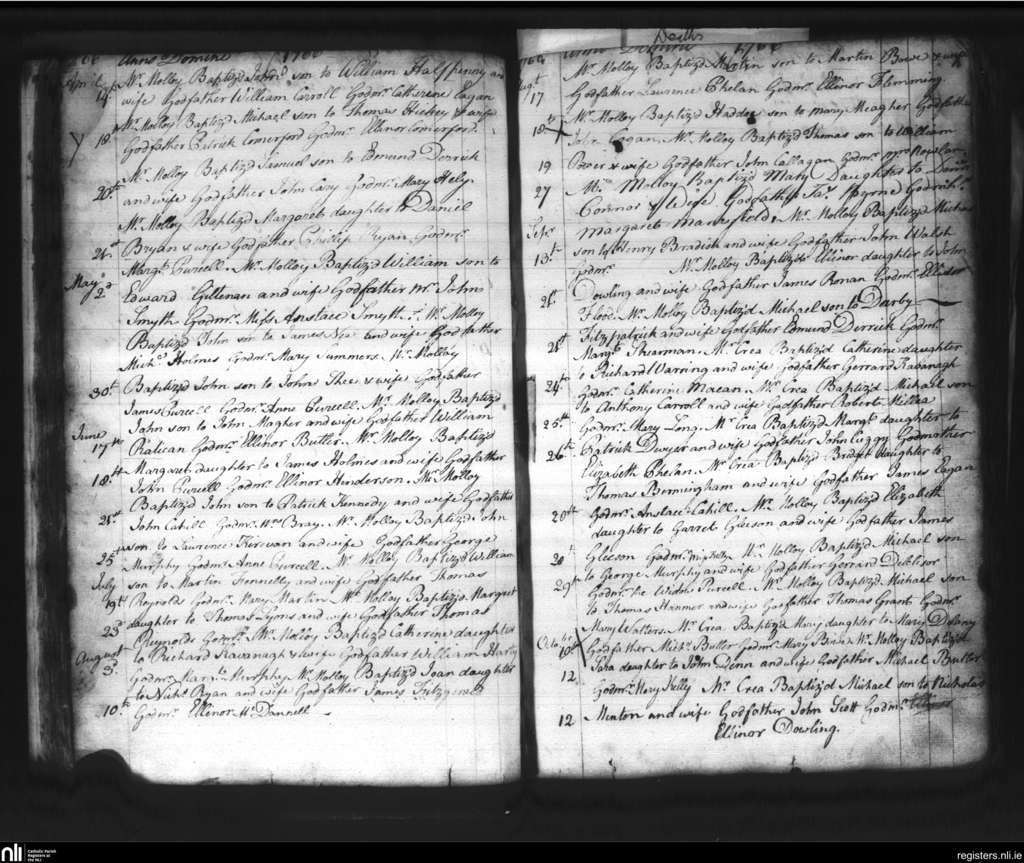 Anno Domini 1766
April
14th Mr. Molloy Baptiz'd John son to William Halfpenny an
wife Godfather William Carroll Godmr. Catherine Eagan
18th Mr. Molloy Baptiz'd Michael son to Thomas Hickey & wife
Godfather Patrick Comerford Godmr. Ellinor Comerford.
Mr. Molloy Baptiz'd Samuel son to Edmund Derrick
20th and wife Godfather John Cavy Godmr. Mary Hely
Mr. Molloy Baptiz'd Margaret daughter to Daniel
21st Bryan & wife Godfather Bryan Godmr.
Margt. Purcell. Mr. Molloy Baptiz'd William son to
May 2d Edward Gillenan and wife Godfather Mr. John
Smyth Godmr. Miss Anstace Smyth. Mr. Molloy
Baptiz'd John son to James and wife Godfather
Michl. Holmes Godmr. Mary Summers. Mr. Molloy
30th Baptiz'd John son to John Shee & wife Godfather
James Purcell Godmr. Anne Purcell. Mr. Molloy Baptiz'd
June John son to John Magher and wife Godfather William
17th Ratican Godmr. Ellinor Butler. Mr. Molloy Baptiz'd
18th Margaret daughter to James Holmes and wife Godfather
John Purcell Godmr. Ellinor Henderson. Mr. Molloy
Baptiz'd John son to Patrick Kennedy and wife Godfather
21st John Cahill Godmr. Bray. Mr. Molloy Baptiz'd John
son to Lawrence Kirwan and wife Godfather George
25th Murphy Godmr. Anne Purcell. Mr. Molloy Baptiz'd William
July son to Martin Fennelly and wife Godfather Thomas
19th Reynolds Godmr. Mary Martin Mr. Molloy Baptiz'd Margret
23d daughter to Thomas Lyons and wife Godfather Thomas
Reynolds Godmr. Mr. Molloy Baptiz'd Catherine daughter
August to Richard Kavanagh & wife Godfather William Harty
3d Godmr. Mary Murphy Mr. Molloy Baptiz'd Joan daughter
to Nichs. Ryan and wife Godfather James Fitzgerald
10th Godmr. Ellenor McDannell
Deaths
Anno Domini 1766
Augt. Mr. Molloy Baptiz'd Martin son to Martin Bowe & wife
17 Godfather Lawrence Phelan Godmr. Ellinor Flemming
Mr. Molloy Baptiz'd son to Mary Meagher Godfather
18th X John Eagan. Mr. Molloy Baptiz'd Thomas son to William
19 Power & wife Godfather John Callagan Godmr. Mrs. Nowlan
27 Mr. Molloy Baptiz'd Mary Daughter to Dennis
Connor & Wife Godfather Jas. Byrne Godmr.
Septr. Margaret Mansfield. Mr. Molloy Baptiz'd Michael
13th son to Henry Bradish and wife Godfather John Walsh
Godmr. Mr. Molloy Baptiz'd Ellinor daughter to John
21st Dowling and wife Godfather James Ronan Godmr. Ellinor
Flood. Mr. Molloy Baptiz'd Michael son to Darby
21st Fitzpatrick and wife Godfather Edmund Derrick Godmr.
Margt. Shearman. Mr. Crea Baptiz'd Catherine daughter
to Richard Warring and wife Godfather Gerrard Kavanagh
24th Godmr. Catherine Maean. Mr. Crea Baptiz'd Michael son
to Anthony Carroll and wife Godfather Robert Millea
25th Godmr. Mary Long. Mr. Crea Baptiz'd Margt. daughter to
26th Patrick Dwyer and wife Godfather John Cuggy Godmother
Elizabeth Phelan. Mr. Crea Baptiz'd Bridget daughter to
Thomas Bermingham and wife Godfather James Eagan
20th Godmr. Anstace Cahill. Mr. Molloy Baptiz'd Elizabeth
daughter to Garret Gleeson and wife Godfather James
20th Gleeson Godmr. Kelly Mr. Molloy Baptiz'd Michael son
to George Murphy and wife Godfather Gerrard
29th Godmr. the Widow Purcell. Mr. Molloy Baptiz'd Michael son
to Thomas Hammer and wife Godfather Thomas Grant Godmr.
Mary Walters. Mr. Crea Baptiz'd Mary daughter to Mary Delany
Octobr. 10th X Godfather Michl. Butler Godmr. Mary Brien Mr. Molloy Baptiz'd
Sara daughter to John Denn and wife Godfather Michael Butler
12 Godmr. Mary Kelly Mr. Crea Baptiz'd Michael son to Nicholas
12 Menton and wife Godfather John Scott Godmr.
Ellinor Dowling.
nli Catholic Parish Registers at the NLI
registers.nli.ie